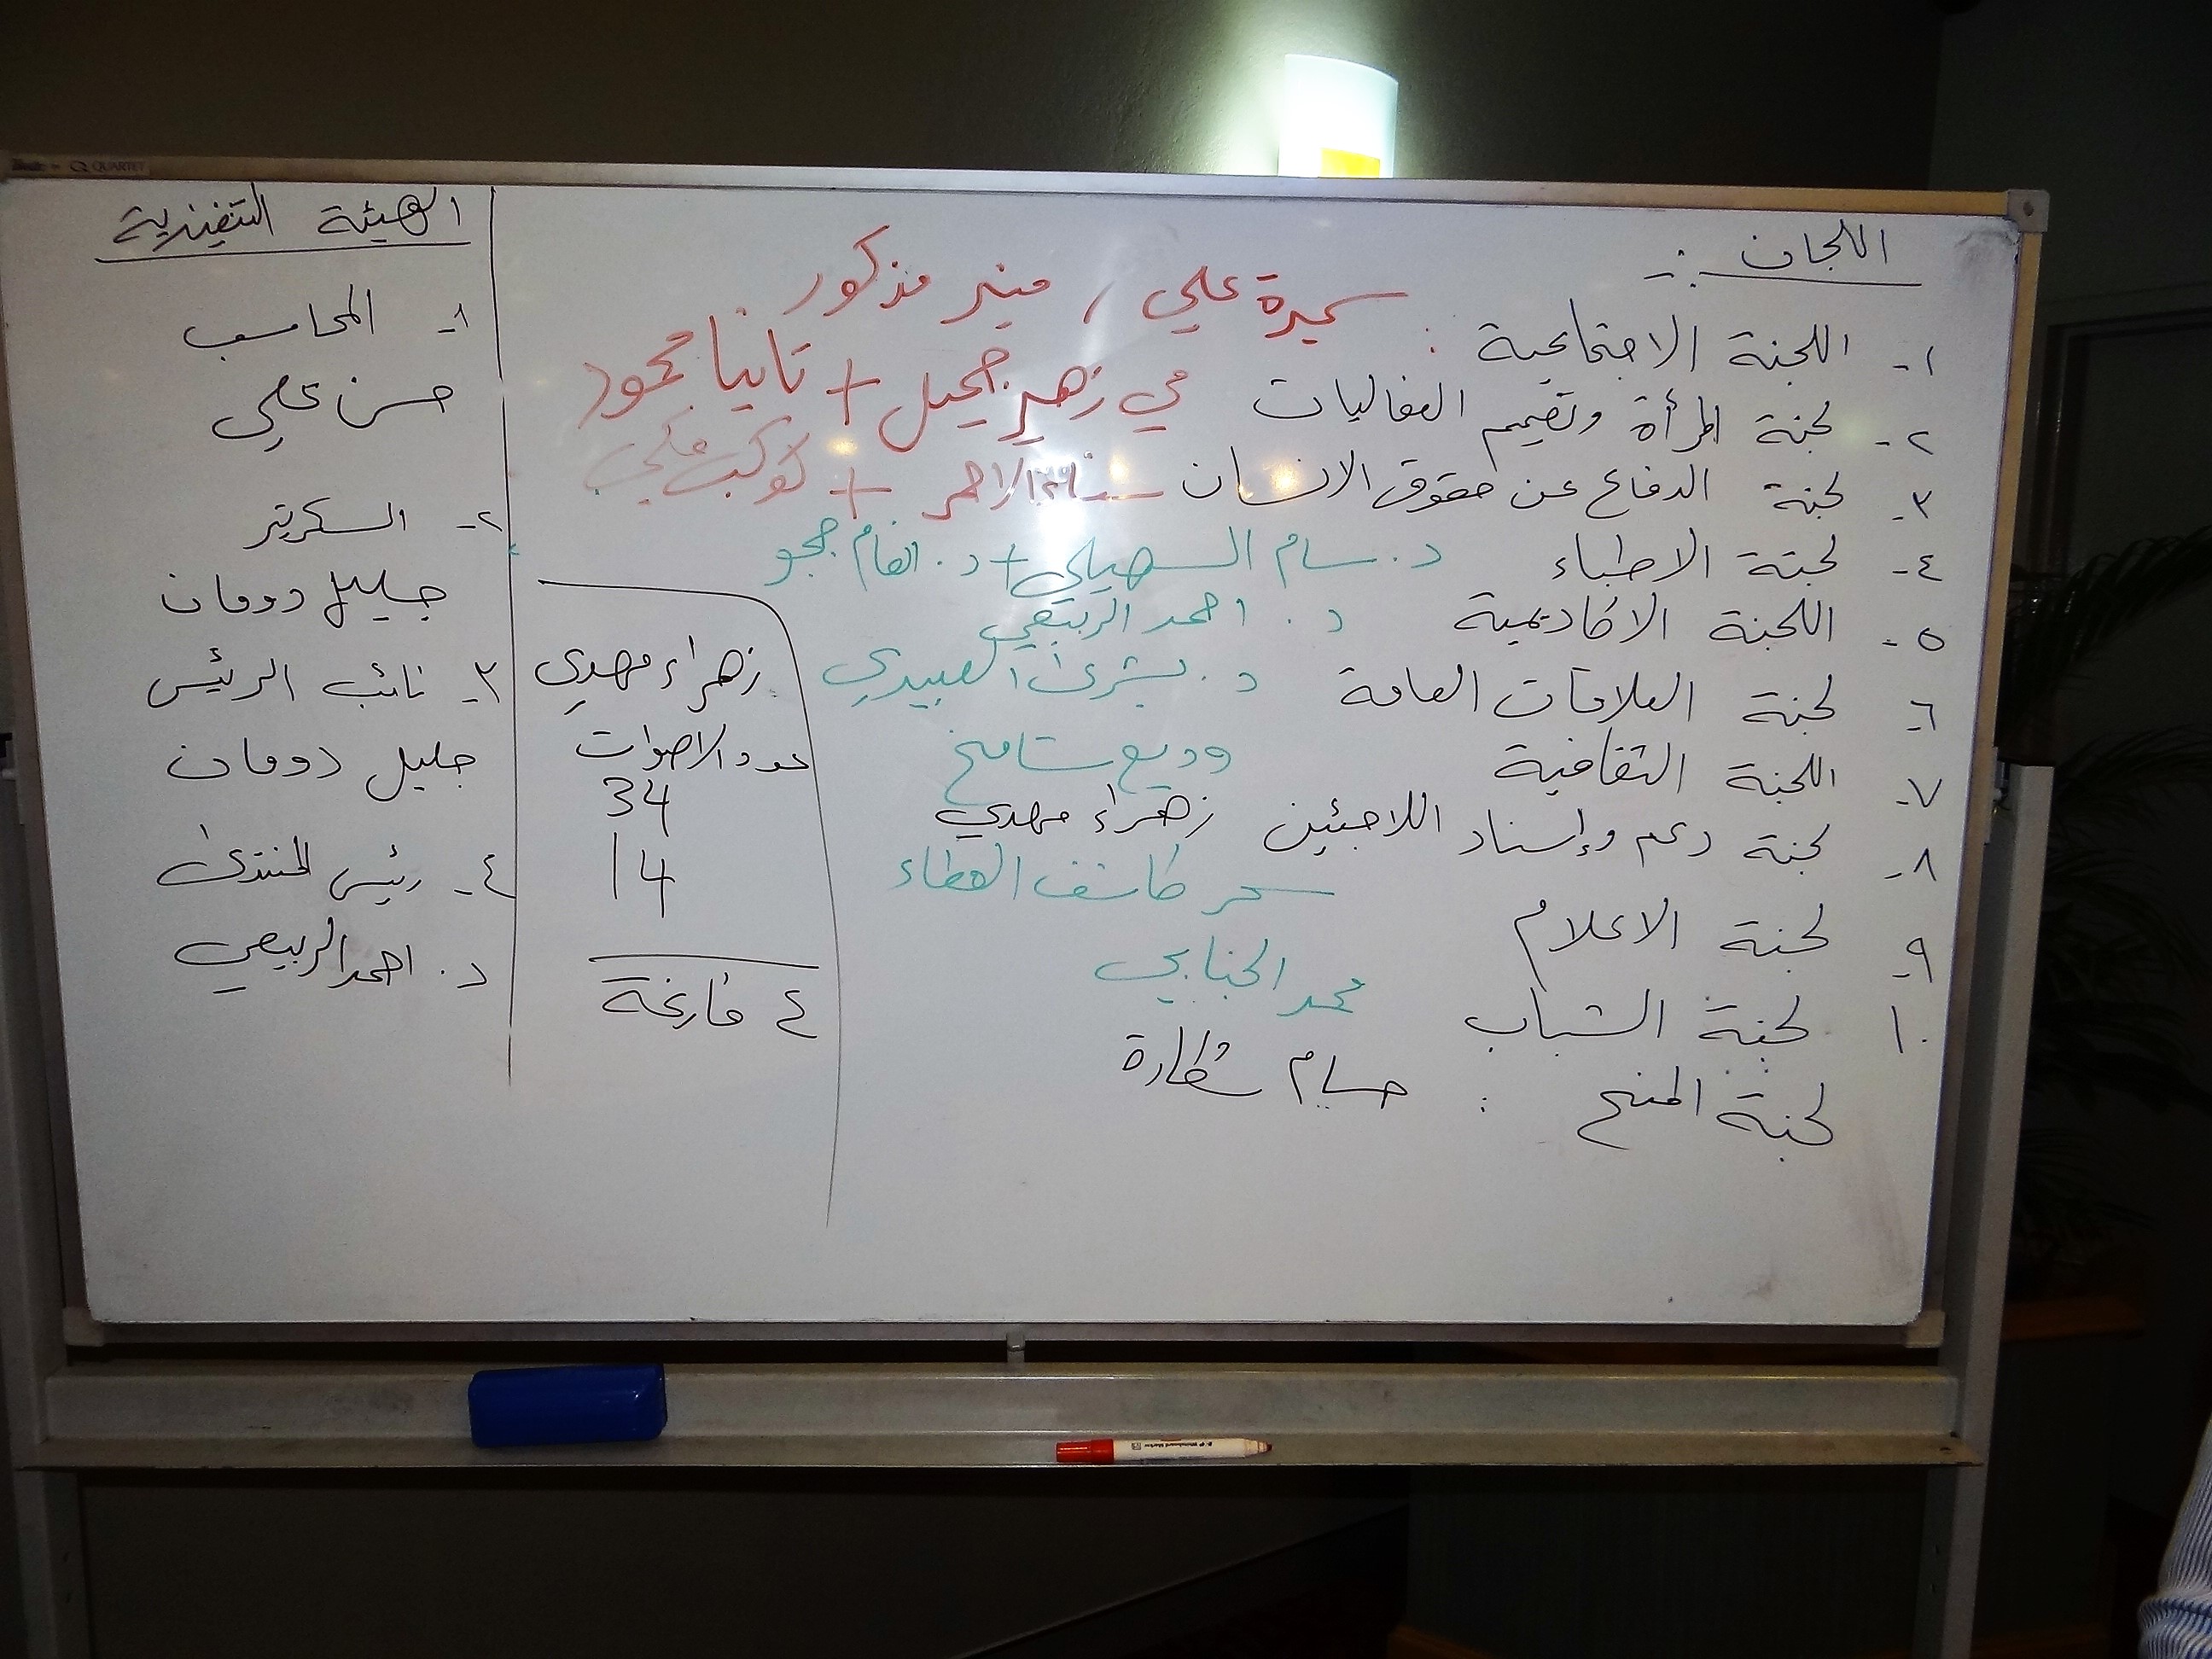 QUARTET
اللجان :-
١- اللجنة الاجتماعية : سميرة علي , منير مذكور
٢- لجنة المرأة وتصميم الفعاليات مي زهير جميل + تانيا محمود
٣- لجنة الدفاع عن حقوق الانسان الاحمر + كوكب مكي
٤- لجنة الاطباء د. سام السهيلي + د. انغام ججو
٥- اللجنة الاكاديمية د. احمد الربيعي
٦- لجنة العلاقات العامة د. بشرى العبيدي
٧- اللجنة الثقافية وديع شامخ
٨- لجنة دعم وإسناد اللاجئين زهراء مهدي
٩- لجنة الاعلام سحر كاشف الغطاء
١٠ لجنة الشباب محمد الجنابي
لجنة المنح : حسام شكارة
زهراء مهدي
عدد الاصوات
34
14
٤ فارغة
الهيئة التنفيذية
١- المحاسب
حسن علي
٢- السكرتير
جليل دومان
٣- نائب الرئيس
جليل دومان
٤- رئيس المنتدى
د. احمد الربيعي
Whiteboard Marker